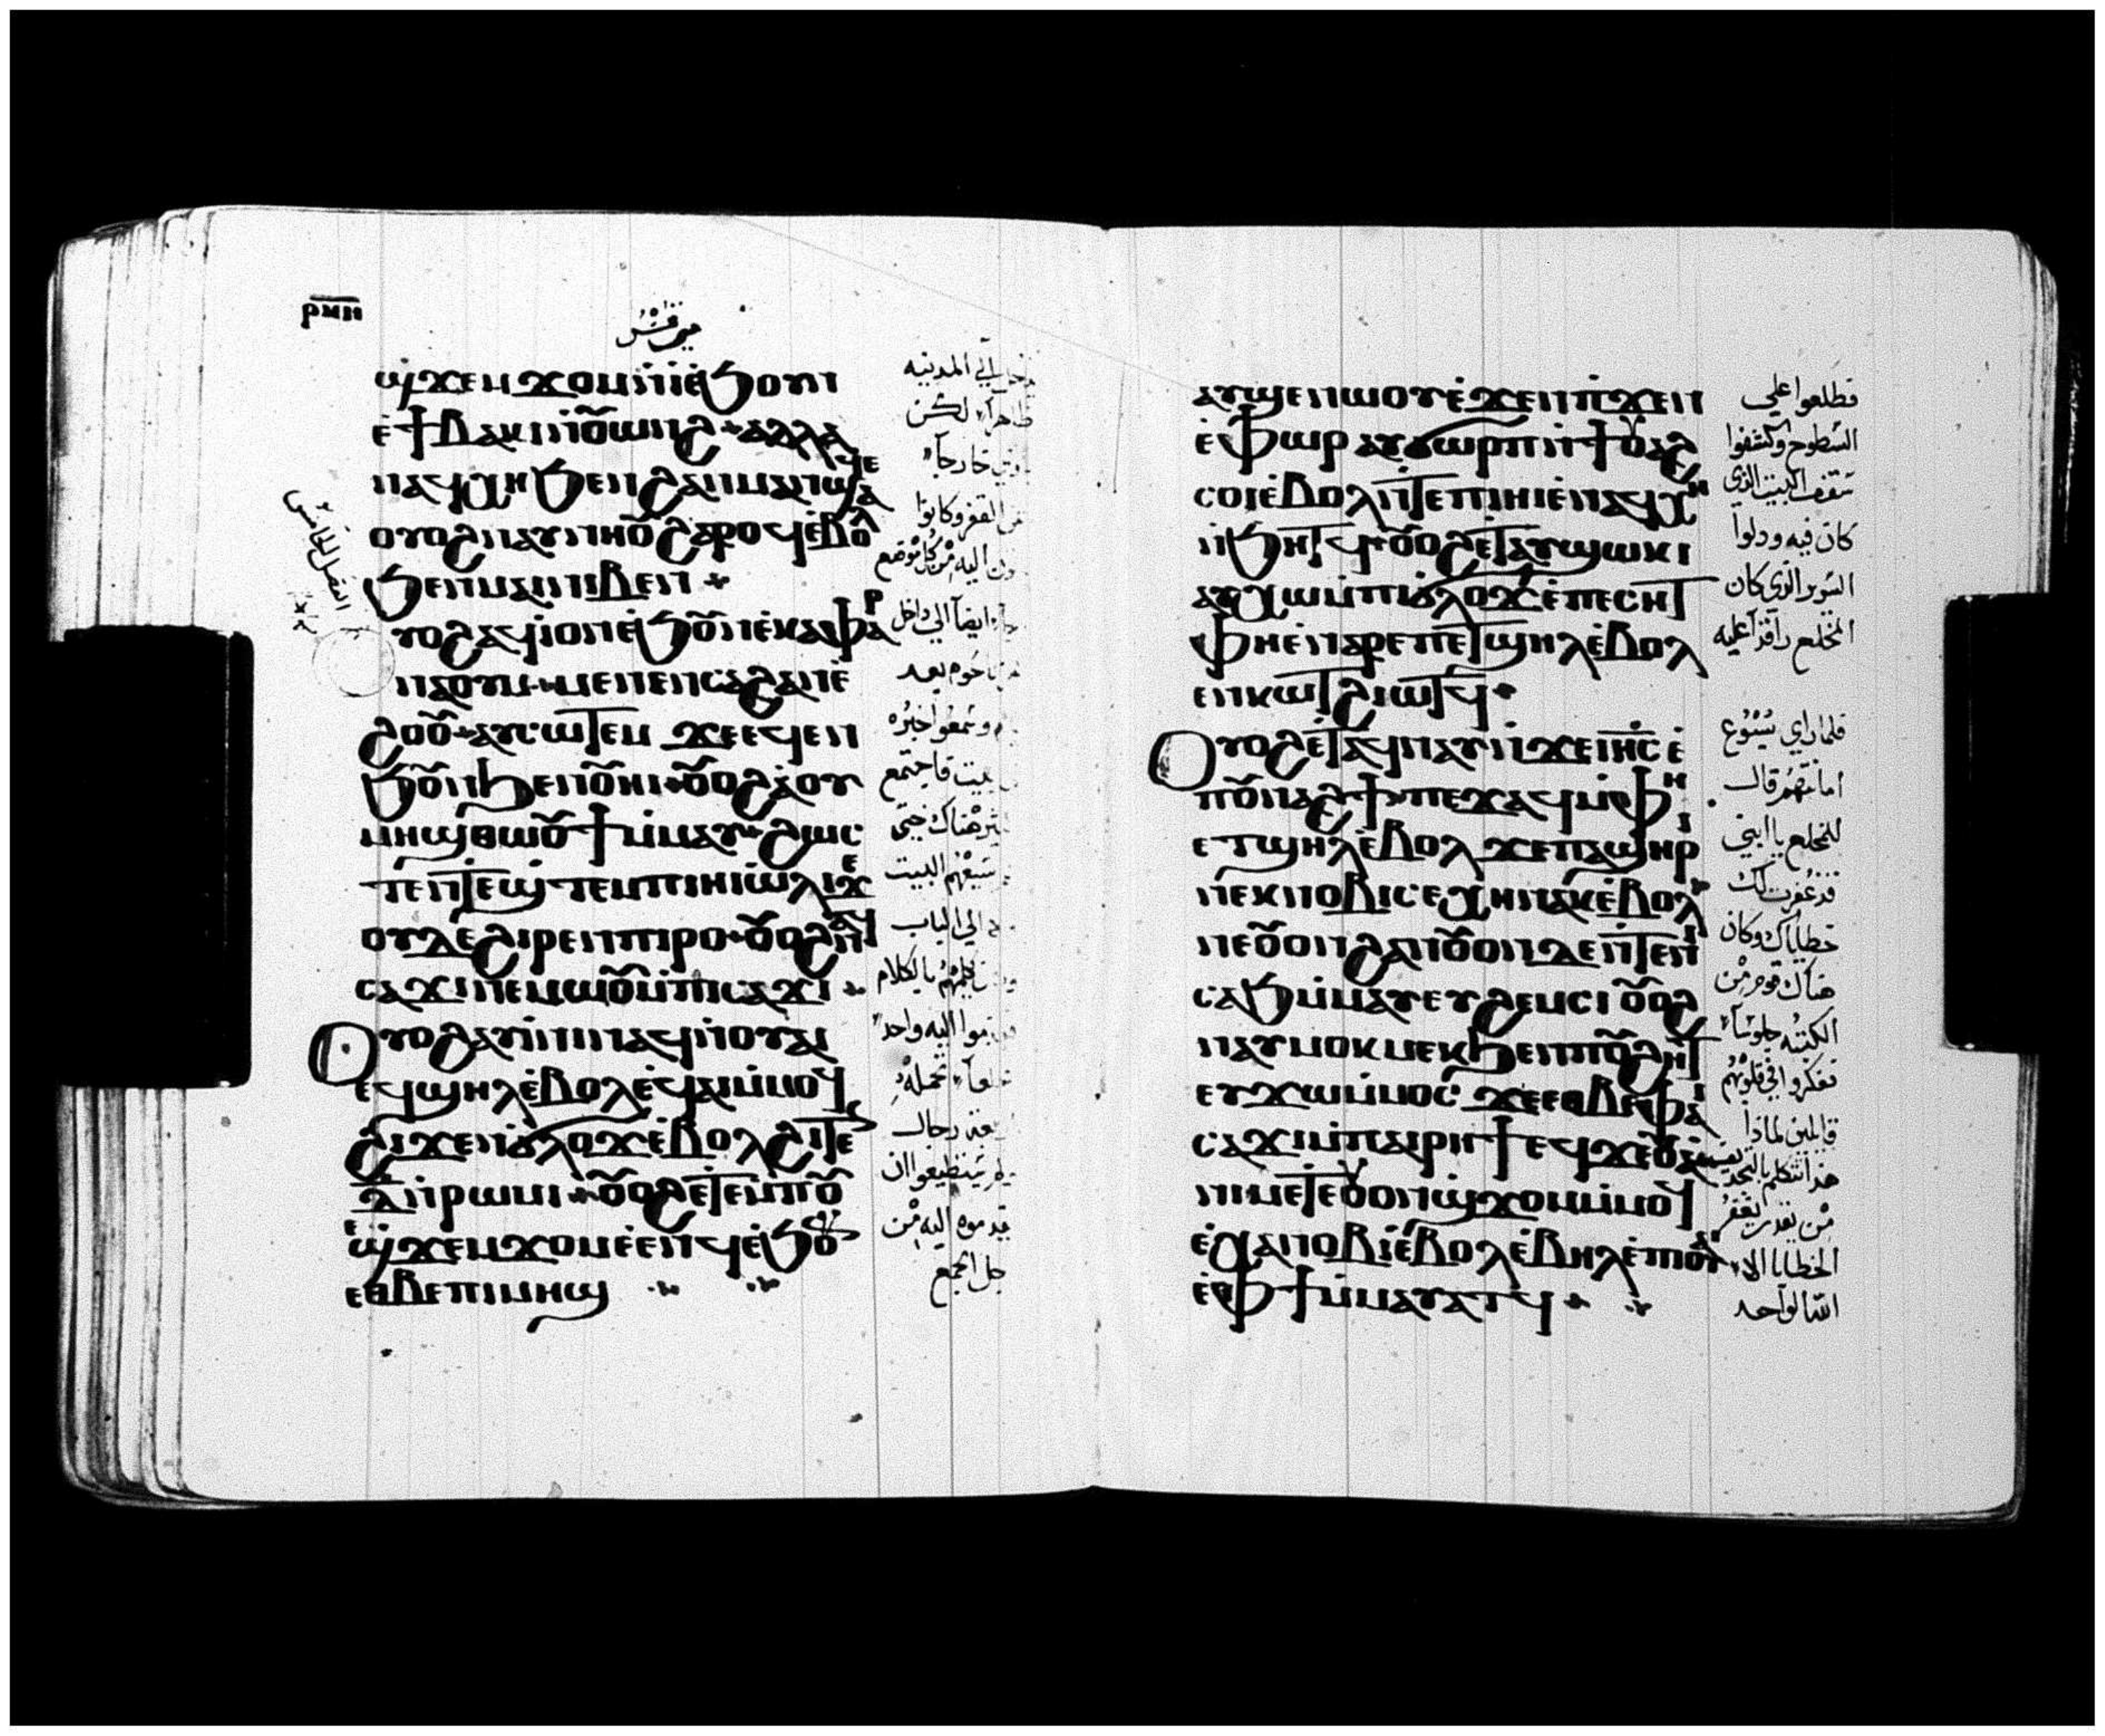 ⲣⲙⲏ
مرقس
ϣϫⲉⲙϫⲟⲙⲛ̀ⲓⲉ̀ϧⲟⲩⲛ
ⲉ̀ϯⲃⲁⲕⲓⲛ̀ⲟⲩⲱⲛϩ ⲁⲗⲗⲁ
ⲛⲁϥⲭⲏϧⲉⲛϩⲁⲛⲙⲁⲛϣⲁϥⲉ
ⲟⲩⲟϩⲛⲁⲩⲛⲏⲟⲩϩⲁⲣⲟϥⲉ̀ⲃⲟⲗ
ϧⲉⲛⲙⲁⲓⲛⲓⲃⲉⲛ
ⲩⲟϩⲁϥⲓⲟⲛⲉ̀ϧⲟⲩⲛⲉ̀ⲕⲁⲫⲁⲣ
ⲛⲁⲟⲩⲙ ⲙⲉⲛⲉⲛⲥⲁϩⲁⲛⲉ̀
ϩⲟⲟⲩ ⲁⲩⲥⲱⲧⲉⲙ ϫⲉⲉϥⲉⲛ
ϧⲟⲩⲛϧⲉⲛⲟⲩⲏⲓ ⲟⲩⲟϩⲁ̀ⲟⲩ
ⲙⲏϣⲑⲱⲟⲩϯⲙ̀ⲙⲁⲩ ϩⲱⲥ
ⲧⲉⲛ̀ⲧⲉϣⲧⲉⲙⲡⲓⲏⲓⲱ̀ⲗⲓϫⲉ
ⲟⲩⲇⲉϩⲓⲣⲉⲛⲡⲓⲣⲟ ⲟⲩⲟϩⲛⲁϥ
ⲥⲁϫⲓⲛⲉⲙⲱⲟⲩⲙ̀ⲡⲓⲥⲁϫⲓ
Ⲟⲩⲟϩⲁⲩⲓⲛⲓⲛⲁϥⲛ̀ⲟⲩⲁⲓ
ⲉϥϣⲏⲗⲉ̀ⲃⲟⲗⲉ̀ϥⲁⲓⲙ̀ⲙⲟϥ
ϩⲓϫⲉⲛⲟⲩϭⲗⲟϫⲉ̀ⲃⲟⲗϩⲓⲧⲉⲛ
ⲇ̅ⲛ̀ⲣⲱⲙⲓ ⲟⲩⲟϩⲉ̀ⲧⲉⲙ̀ⲡⲟⲩ
ϣϫⲉⲙϫⲟⲙⲉ̀ⲉⲛϥⲉ̀ϧⲟⲩⲛ
ⲉⲑⲃⲉⲡⲓⲙⲏϣ
الفصل الخامس
المدينه
ظاهرا لكن
خارجا
القفر وكانوا
اليه من كل موضع
ايضا الي داخل
ناحوم بعد
وسمعوا خبره
بيت فاجتمع
هناك حتي
البيت
الي الباب
يكلمهم بالكلام
اليه واحد
تحمله
رجال
يستطيعوا ان
يقدموه اليه من
اجل الجمع
ⲁⲩϣⲉⲛⲱⲟⲩⲉ̀ϫⲉⲛⲡ̀ϫⲉⲛ
ⲉ̀ⲫⲱⲣ ⲁⲩϭⲱⲣⲡⲛ̀ϯⲟⲩⲁϩ
ⲥⲟⲓⲉ̀ⲃⲟⲗⲛ̀ⲧⲉⲡⲓⲏⲓⲉ̀ⲛⲁϥⲭⲏ
ⲛ̀ϧⲏⲧϥ ⲟⲩⲟϩⲉ̀ⲧⲁⲩϣⲱⲕⲓ
ⲁⲩⲭⲱⲙ̀ⲡⲓϭⲗⲟϫⲉ̀ⲡⲉⲥⲏⲧ
ⲫⲏⲉ̀ⲛⲁⲣⲉⲡⲉⲧϣⲏⲗⲉ̀ⲃⲟⲗ
ⲉⲛⲕⲟⲧϩⲓⲱⲧϥ
Ⲟⲩⲟϩⲉ̀ⲧⲁϥⲛⲁⲩⲛ̀ϫⲉⲓⲏ̅ⲥ̅ⲉ̀
ⲡⲟⲩⲛⲁϩϯ ⲡⲉϫⲁϥⲙ̀ⲫⲏ
ⲉⲧϣⲏⲗⲉ̀ⲃⲟⲗ ϫⲉⲡⲁϣⲏⲣⲓ
ⲛⲉⲕⲛⲟⲃⲓⲥⲉⲭⲏⲛⲁⲕⲉ̀ⲃⲟⲗ
ⲛⲉⲟⲩⲟⲛϩⲁⲛⲟⲩⲟⲛⲇⲉⲛ̀ⲧⲉⲛⲓ
ⲥⲁϧⲙ̀ⲙⲁⲩⲉⲩϩⲉⲙⲥⲓ ⲟⲩⲟϩ
ⲛⲁⲩⲙⲟⲕⲙⲉⲕϧⲉⲛⲡⲟⲩϩⲏⲧ
ⲉⲩϫⲱⲙ̀ⲙⲟⲥ ϫⲉⲉⲑⲃⲉⲫⲁⲓ
ⲥⲁϫⲓⲙ̀ⲡⲁⲓⲣⲏϯⲉϥϫⲉⲟⲩⲁ̀
ⲛⲓⲙⲉⲧⲉⲟⲩⲟⲛϣϫⲟⲙⲙ̀ⲙⲟϥ
ⲉ̀ⲭⲁⲛⲟⲃⲓⲉ̀ⲃⲟⲗⲉ̀ⲃⲏⲗⲉ̀ⲡⲓⲟⲩⲁⲓ
ⲉ̀ⲫϯⲙ̀ⲙⲁⲩⲁⲧϥ
فطلعوا علي
السطوح وكشفوا
سقف البيت الذي
كان فيه ودلوا
السرير الذي كان
المخلع راقدا عليه
فلما راي يسوع
امانتهم قال
للمخلع يا ابني
قد غفرت لك
خطاياك وكان
هناك قوم من
الكتبه جلوسا
ففكروا في قلوبهم
قايلين لماذا
هذا يتكلم بالتجديف
من يقدر يغفر
الخطايا الا
الله الواحد